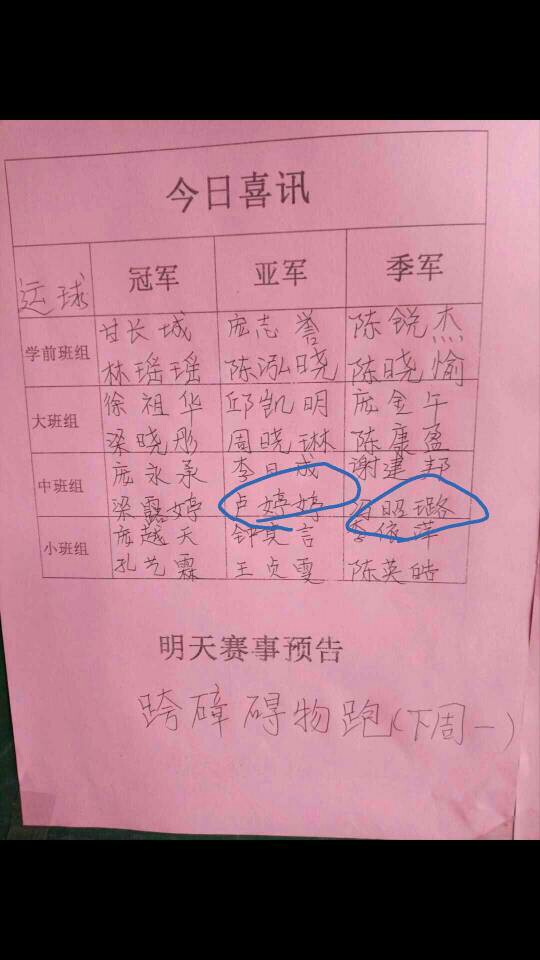 今日喜讯
运球 冠军 亚军 季军
学前班组 甘长城 庞志誉 陈锐杰
林瑶瑶 陈泓晓 陈晓愉
大班组 徐祖华 邱凯明 庞金午
梁晓彤 周晓琳 陈康盈
中班组 庞永承 李日成 谢建邦
梁露婷 卢婷婷 昭璐
小班组 庞越天 钟竞言 李依萍
孔艺霖 王贞雯 陈英皓
明天赛事预告
跨障碍物跑(下周一)